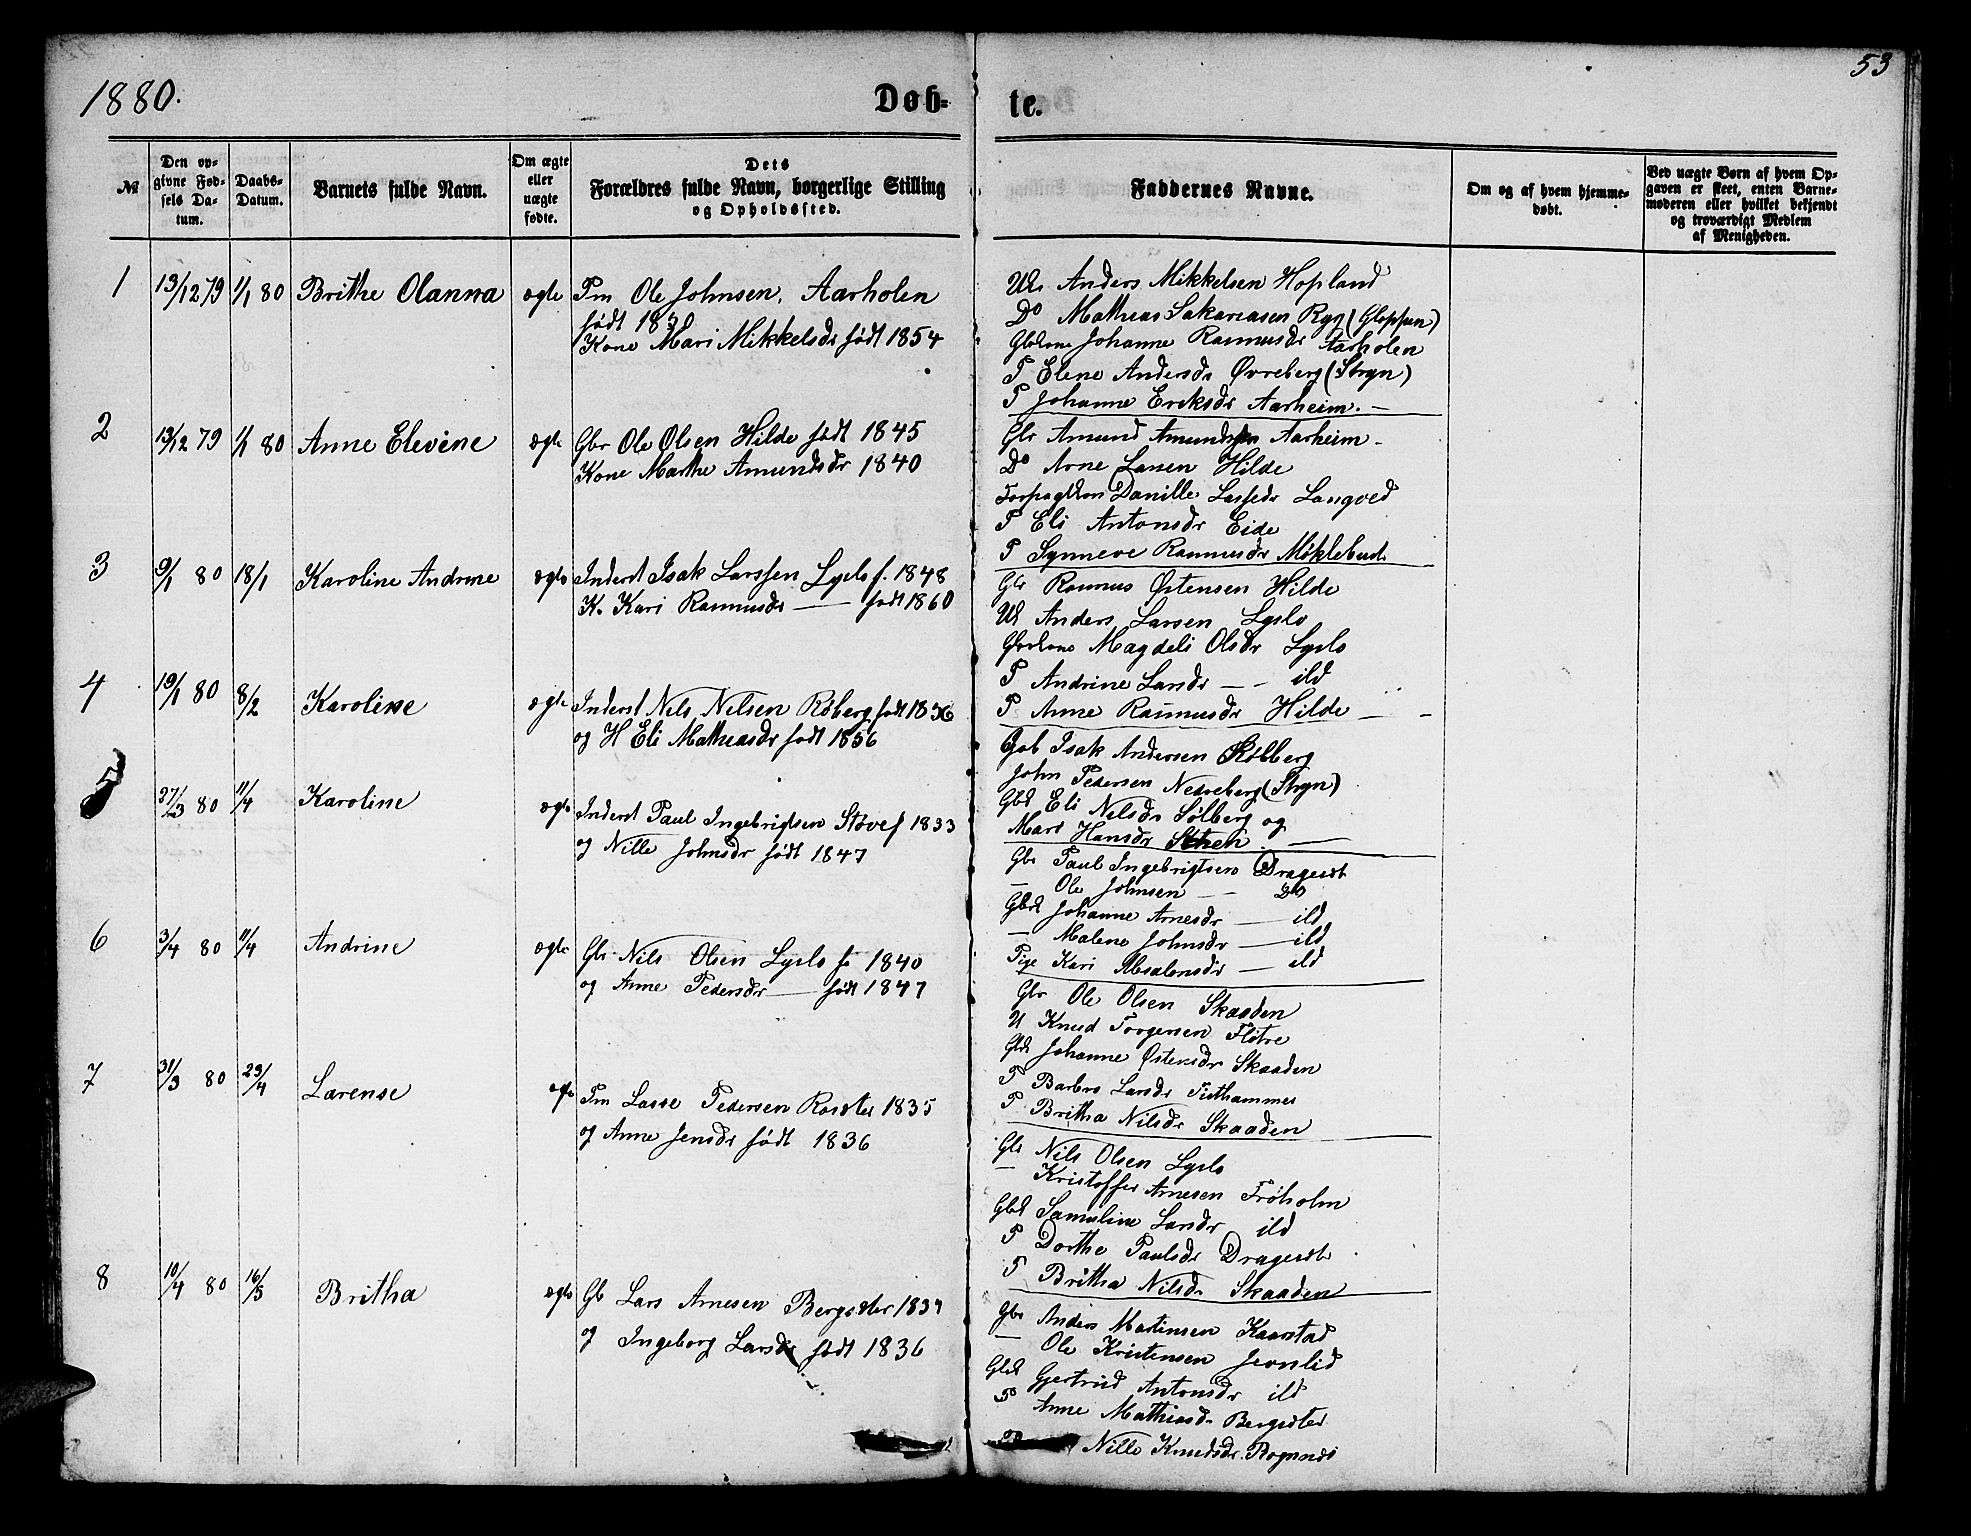 1880.
Døb-
te.
53
№
Den op-
givne Fød-
sels Da-
tum.
Daabs-
Datum.
Barnets fulde Navn.
Om ægte
eller
uægte
fødte.
Dets
Forældres fulde Navn, borgerlige Stilling
og Opholdssted.
Faddernes Navne.
Om og af hvem hjemme-
døbt.
Ved uægte Børn af hvem Op-
gaven er skeet, enten Barne-
moderen eller hvilket bekjendt
og troværdigt Medlem
af Menigheden.
1 13/12 79 1/1 80 Brithe Olanna ægte Pm Ole Johnsen, Aarholen
født
Kone Mari Mikkelsdr født 1854
Anders Mikkelsen Hopland
Do Mathias Sakariasen Ryg (Gloppen)
Gbkone Johanne Rasmusdr Aarholen
P Elene Andersdr Øvreberg (Stryn)
P Johanne Eriksdr Aarheim.
2 13/12 79 1/1 80 Anne Elevine ægte Gbr Ole Olsen Hilde født 1845
Kone Marthe Amundsdr 1840
Gbr Amund Amundsen Aarheim
Do Arne Larsen Hilde
Danille Lassedr Langved
P Eli Antonsdr Eide
P Synneve Rasmusdr Møklebust
3 9/1 80 18/1 Karoline Andrine ægte Inderst Isak Larssen Lyslo f. 1848
K. Kari Rasmusdr — født 1860
Gbr Rasmus Østensen Hilde
Anders Larsen Lyslo
Gbrkone Magdeli Olsdr Lyslo
P Andrine Larsdr — ild
P Anne Rasmusdr Hilde
4 19/1 80 8/2 Karoline ægte Inderst Nils Nilsen Røberg født 1856
og H Eli Mathiasdr født 1856
Gbr Isak Andersen Sølberg
John Pedersen Nedreberg (Stryn)
Gbk Eli Nilsdr Sølberg og
Mari Hansdr
5 27/3 80 11/4 Karoline ægte Inderst Paul Ingebrigtsen Støve f 1833
og Nille Johnsdr født 1847
Gbr Paul Ingebrigtsen Drageset
— Ole Johnsen — Do
Gbk Johanne Arnesdr — ild
— Malene Johnsdr — ild
Pige Kari Absalonsdr — ild
6 3/4 80 11/4 Andrine ægte Gbr Nils Olsen Lyslo f. 1840
og Anne Pedersdr — født 1847
Gbr Ole Olsen Skaaden
U Knud Torgersen Flòtre
Gbk Johanne Østensdr Skaaden
P Barbro Larsdr Tisthammer
P Britha Nilsdr Skaaden
7 31/3 80 23/4 Larense ægte Pm Lasse Pedersen Rosseter 1835
og Anne Jensdr født 1836
Gbr Nils Olsen Lyslo
— Kristoffer Arnesen Frøholm
Gbk Samuline Larsdr ild
P Dorthe Paulsdr Drageset
P Britha Nilsdr Skaaden
8 10/4 80 16/5 Britha ægte Gb Lars Arnesen Bergseter 1837
og Ingeborg Larsdr født 1836
Gbr Anders Martinsen Kaarstad
— Ole Kristensen
Gbk Gjertrud Antonsdr ild
P Anne Mathiasdr Bergseter
Nille Knudsdr Rognnes